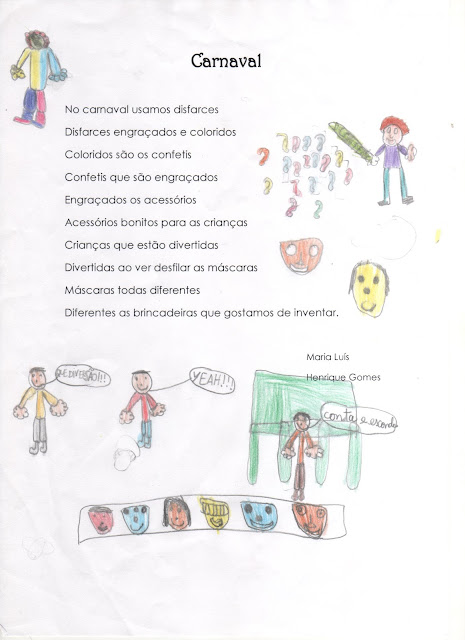 Carnaval
No carnaval usamos disfarces
Disfarces engraçados e coloridos
Coloridos são os confetis
Confetis que são engraçados
Engraçados os acessórios
Acessórios bonitos para as crianças
Crianças que estão divertidas
Divertidas ao ver desfilar as máscaras
Máscaras todas diferentes
Diferentes as brincadeiras que gostamos de inventar.
Maria Luís
Henrique Gomes
DIVERSÃO!!!
YEAH!!!
conta e esconde